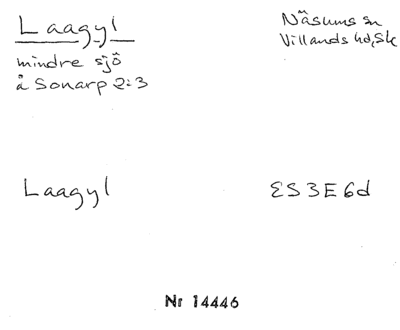 Laagyl
mindre sjö
å Sonarp 2:3
Näsums sn
Villands hd, Sk
Laagyl
ES3E6d
Nr 14446